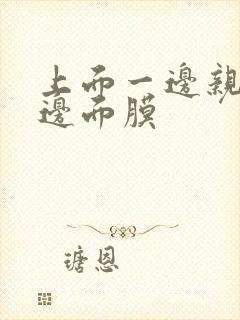 上而一邊親
邊而膜
瑭恩